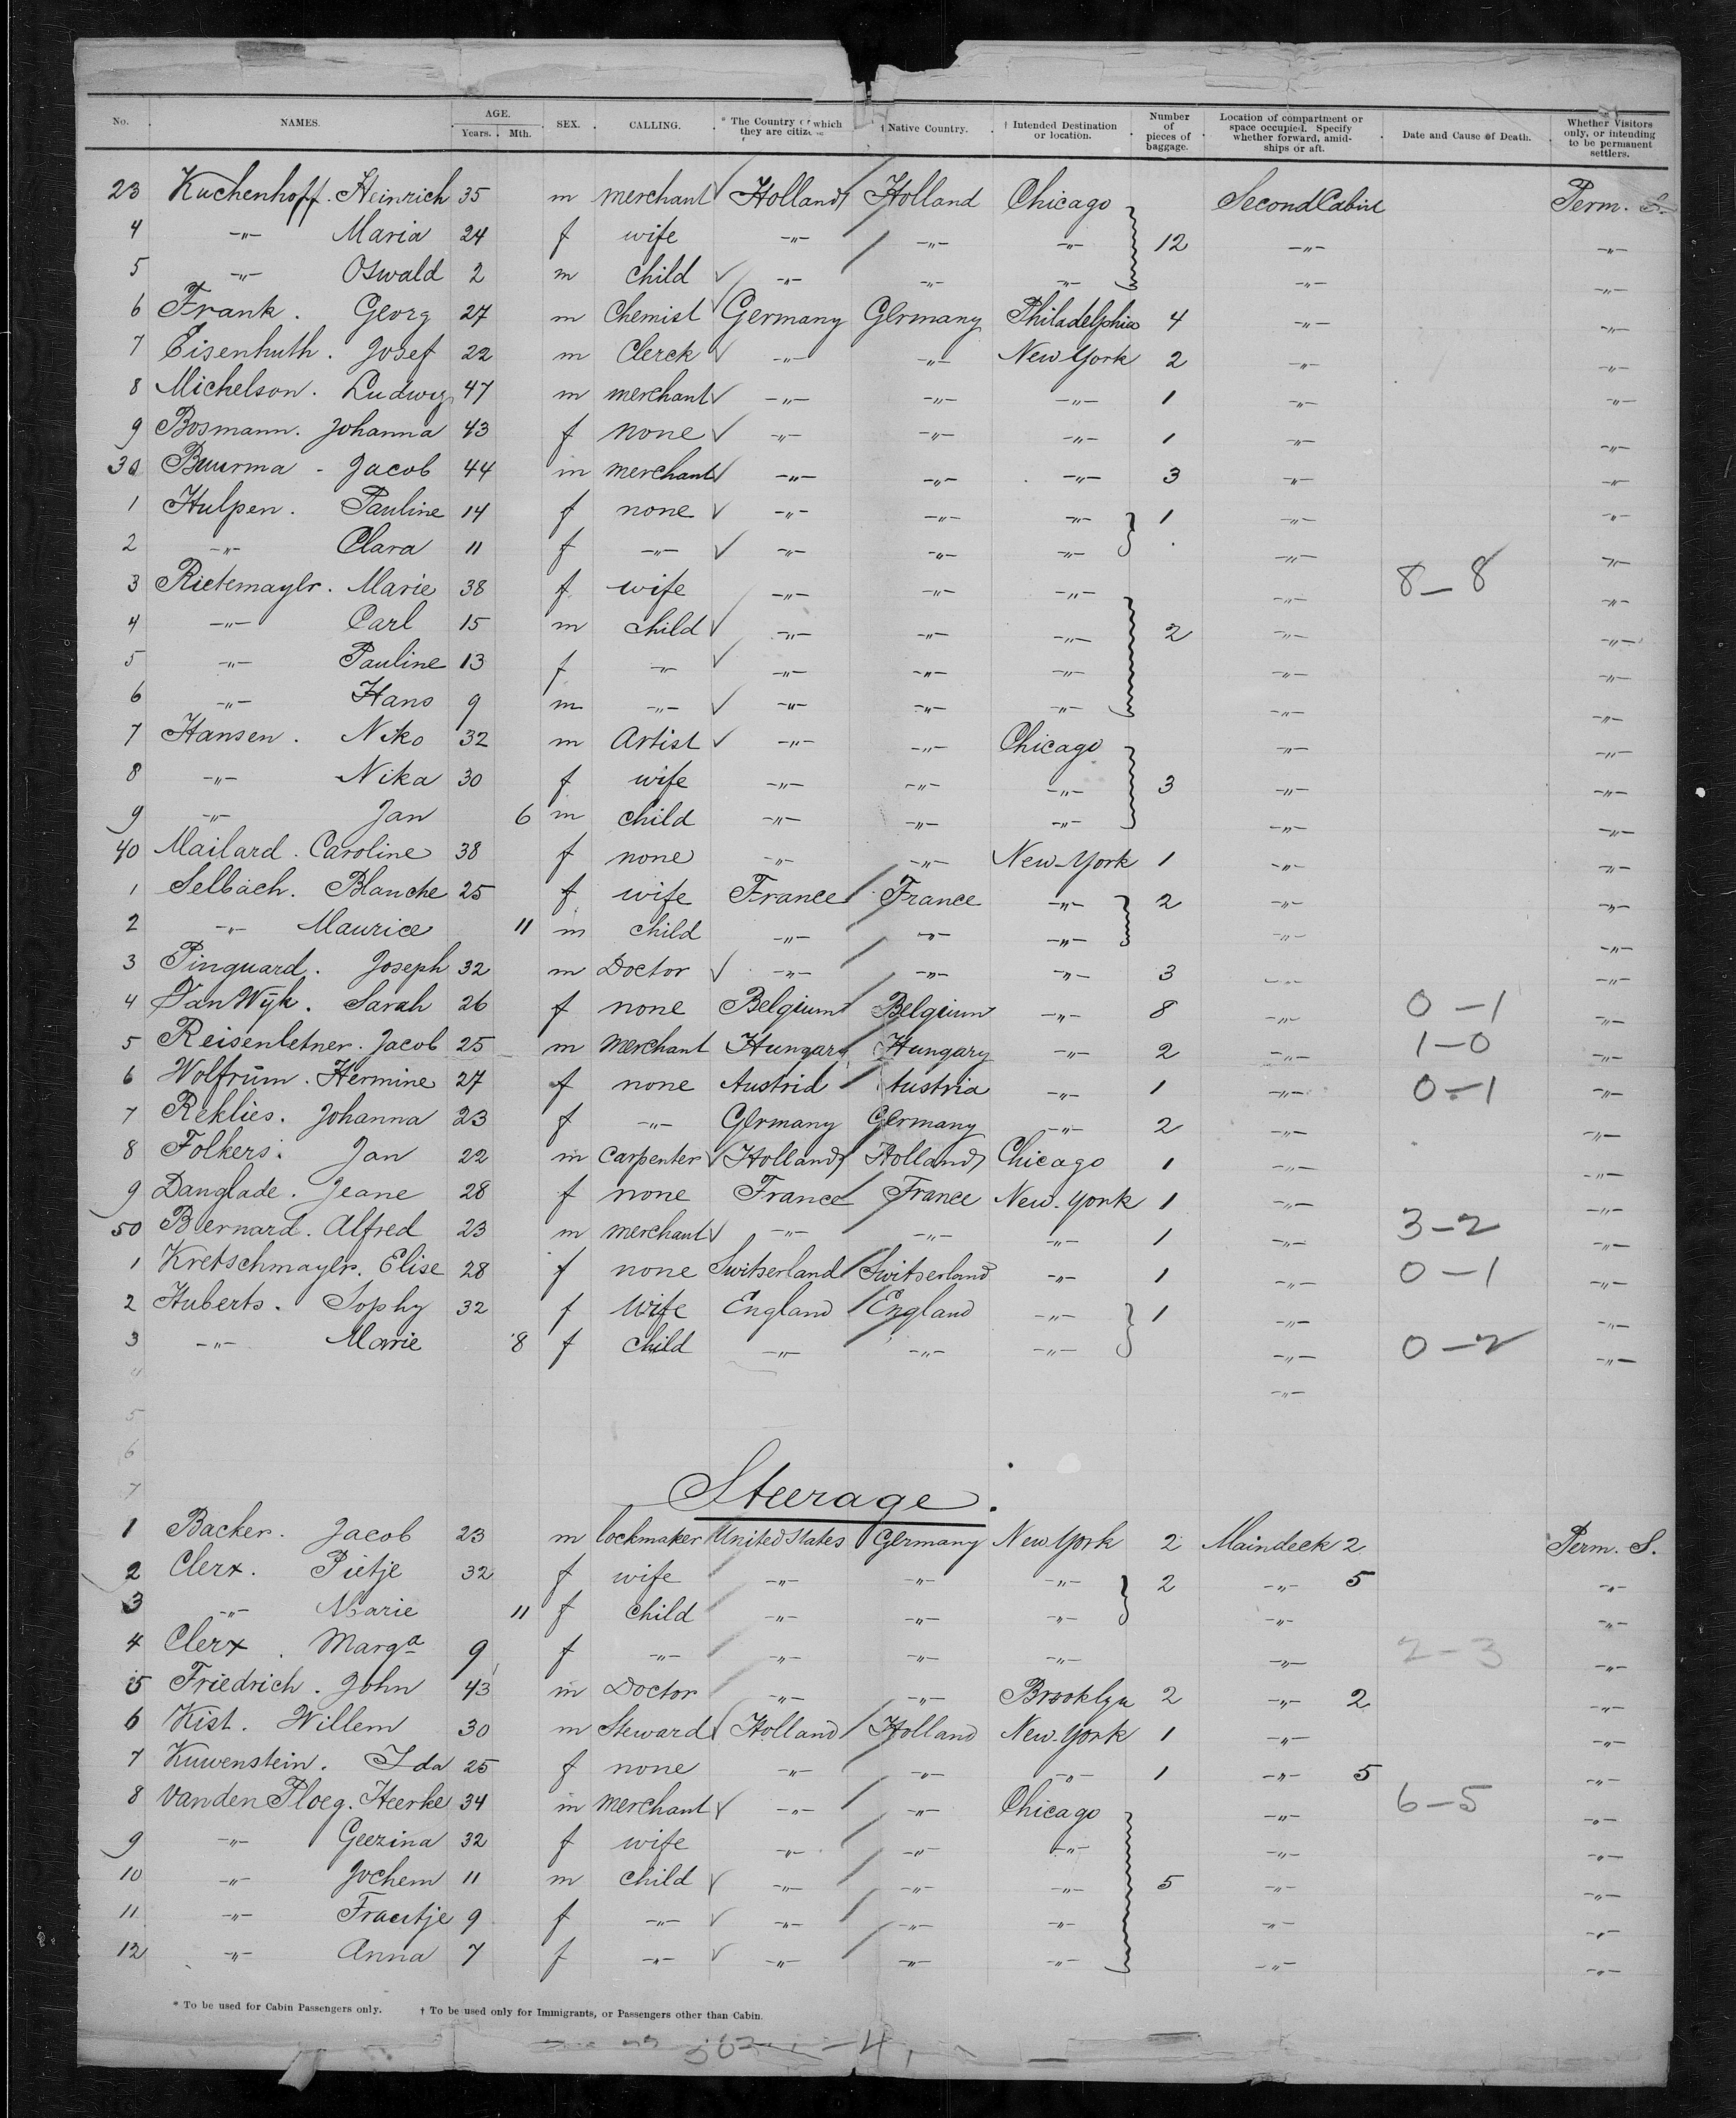 No. NAMES. AGE. Years. Mth. SEX. CALLING. * The Country of which they are citizens † Native Country. † Intended Destination or location. Number of pieces of baggage. Location of compartment or space occupied. Specify whether forward, amid-ships or aft. Date and Cause of Death. Whether Visitors only, or intending to be permanent settlers.
23 Kuchenhoff. Heinrich 35 m merchant Holland Holland Chicago Second Cabin Perm. S.
4 -"- Maria 24 f wife -"- -"- -"- 12 -"- -"-
5 -"- Oswald 2 m child -"- -"- -"- -"- -"-
6 Frank. Georg 27 m Chemist Germany Germany Philadelphia 4 -"- -"-
7 Eisenhuth. Josef 22 m Clerck -"- -"- New York 2 -"- -"-
8 Michelson. Ludwig 47 m merchant -"- -"- -"- 1 -"- -"-
9 Bosmann. Johanna 43 f none -"- -"- -"- 1 -"- -"-
30 Buurma - Jacob 44 m merchant -"- -"- -"- 3 -"- -"-
1 Hulpen. Pauline 14 f none -"- -"- -"- 1 -"- -"-
2 -"- Clara 11 f -"- -"- -"- -"- -"- -"-
3 Rietemayer. Marie 38 f wife -"- -"- -"- -"- 8-8 -"-
4 -"- Carl 15 m child -"- -"- -"- 2 -"- -"-
5 -"- Pauline 13 f -"- -"- -"- -"- -"- -"-
6 -"- Hans 9 m -"- -"- -"- -"- -"- -"-
7 Hansen. Niko 32 m Artist -"- -"- Chicago -"- -"-
8 -"- Nika 30 f wife -"- -"- -"- 3 -"- -"-
9 -"- Jan 6 m child -"- -"- -"- -"- -"-
40 Mailard. Caroline 38 f none -"- -"- New-York 1 -"- -"-
1 Selbach. Blanche 25 f wife France France -"- 2 -"- -"-
2 -"- Maurice 11 m child -"- -"- -"- -"- -"-
3 Pinguard. Joseph 32 m Doctor -"- -"- -"- 3 -"- -"-
4 Van Wÿk. Sarah 26 f none Belgium Belgium -"- 8 -"- 0-1 -"-
5 Reisenletner. Jacob 25 m merchant Hungary Hungary -"- 2 -"- 1-0 -"-
6 Wolfrum. Hermine 27 f none Austria Austria -"- 1 -"- 0-1 -"-
7 Reklies. Johanna 23 f -"- Germany Germany -"- 2 -"- -"-
8 Folkers. Jan 22 m carpenter Holland Holland Chicago 1 -"- -"-
9 Danglade. Jeane 28 f none France France New-York 1 -"- -"-
50 Bernard. Alfred 23 m merchant -"- -"- -"- 1 -"- 3-2 -"-
1 Kretschmayer. Elise 28 f none Switserland Switserland -"- 1 -"- 0-1 -"-
2 Huberts. Sophy 32 f Wife England England -"- 1 -"- -"-
3 -"- Marie 8 f child -"- -"- -"- -"- 0-2 -"-
4 -"-
5
6
7
Steerage.
1 Backer. Jacob 23 m lockmaker United States Germany New York 2 Maindeck 2 Perm. S.
2 Clerx. Pietje 32 f wife -"- -"- -"- 2 -"- 5 -"-
3 -"- Marie 11 f child -"- -"- -"- -"- -"-
4 Clerx. Marga 9 f -"- -"- -"- -"- -"- 2-3 -"-
5 Friedrich. John 43 m Doctor -"- -"- Brooklyn 2 -"- 2 -"-
6 Kist. Willem 30 m Steward Holland Holland New York 1 -"- -"-
7 Kuwenstein. Ida 25 f none -"- -"- -"- 1 -"- 5 -"-
8 van den Ploeg. Heerke 34 m merchant -"- -"- Chicago -"- 6-5 -"-
9 -"- Geezina 32 f wife -"- -"- -"- -"- -"-
10 -"- Jochem 11 m child -"- -"- -"- 5 -"- -"-
11 -"- Frautje 9 f -"- -"- -"- -"- -"- -"-
12 -"- Anna 7 f -"- -"- -"- -"- -"- -"-
* To be used for Cabin Passengers only. † To be used only for Immigrants, or Passengers other than Cabin.